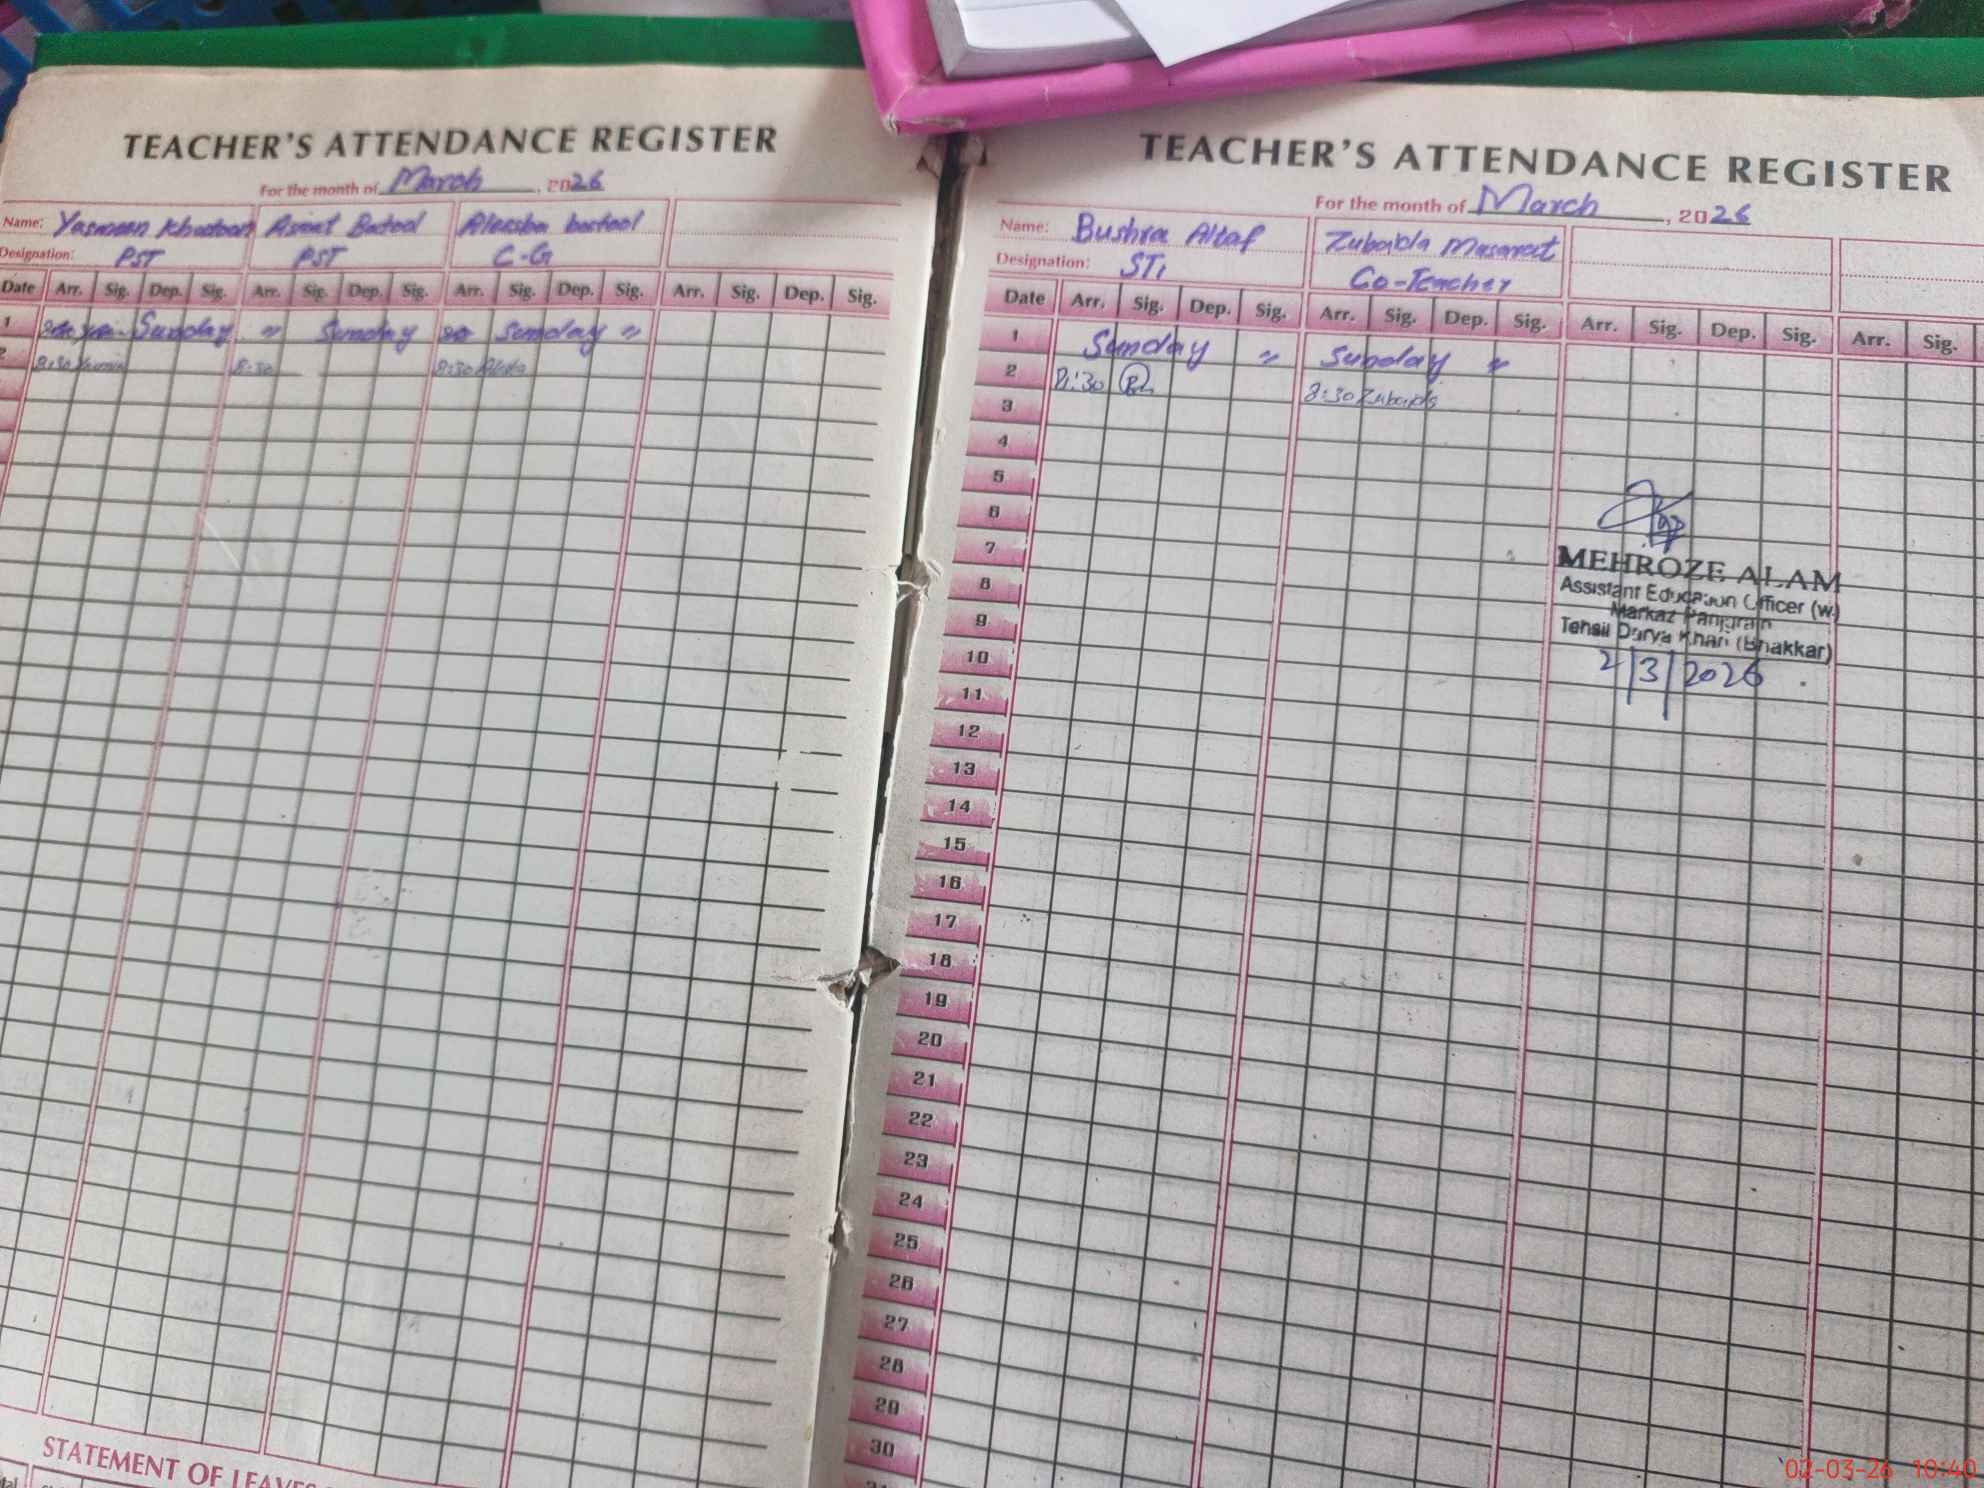 TEACHER'S ATTENDANCE REGISTER
For the month of March, 2026
Name: Yasmeen Khatoon Asmat Batool Aleesba batool
Designation: PST PST C-G
Date Arr. Sig. Dep. Sig. Arr. Sig. Dep. Sig. Arr. Sig. Dep. Sig. Arr. Sig. Dep. Sig.
1 Sunday " Sunday Sunday "
2 8:30 8:30 8:30
STATEMENT OF LEAVES
TEACHER'S ATTENDANCE REGISTER
For the month of March, 2026
Name: Bushra Altaf Zubaida Masarat
Designation: STI Co-Teacher
Date Arr. Sig. Dep. Sig. Arr. Sig. Dep. Sig. Arr. Sig. Dep. Sig. Arr. Sig.
1 Sunday " Sunday "
2 8:30 8:30 Zubaida
3
4
5
6
7
8
9
10
11
12
13
14
15
16
17
18
19
20
21
22
23
24
25
26
27
28
29
30
MEHROZE ALAM
Assistant Education Officer (w)
Markaz Panjgrain
Tehsil Darya Khan (Bhakkar)
2/3/2026
02-03-26 10:40